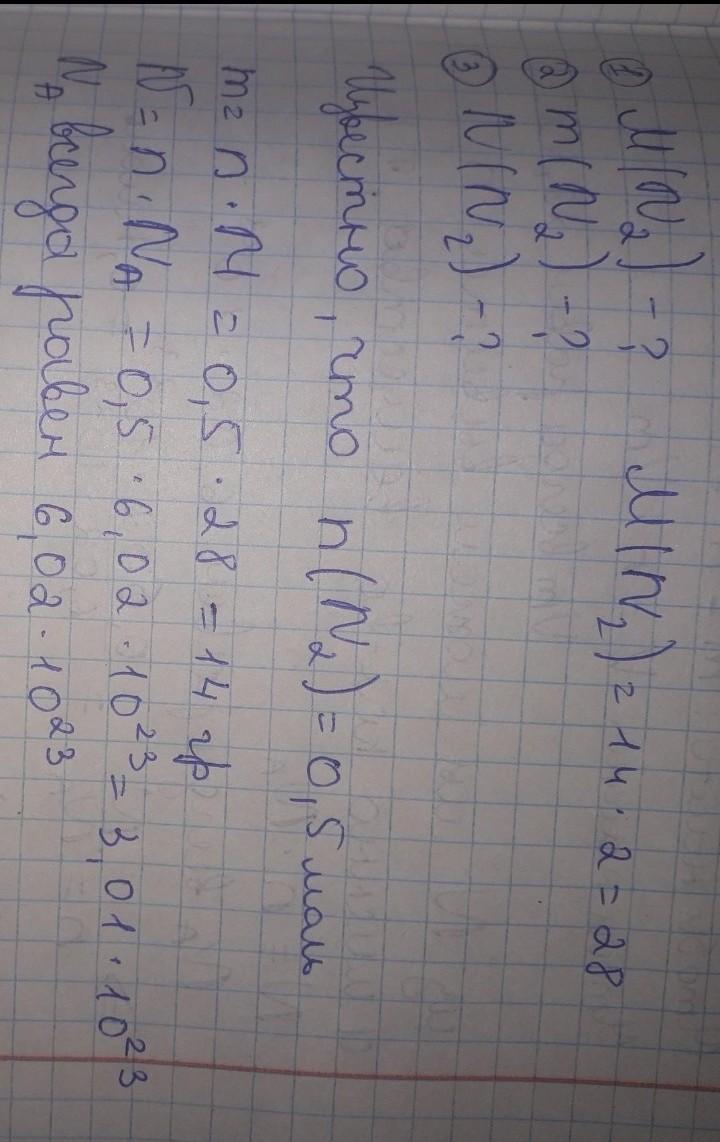 ① M(N₂) - ? M(N₂) = 14 · 2 = 28
② m(N₂) - ?
③ N(N₂) - ?
Известно, что n(N₂) = 0,5 моль
m = n · M = 0,5 · 28 = 14 гр
N = n · Nₐ = 0,5 · 6,02 · 10²³ = 3,01 · 10²³
Nₐ всегда равен 6,02 · 10²³